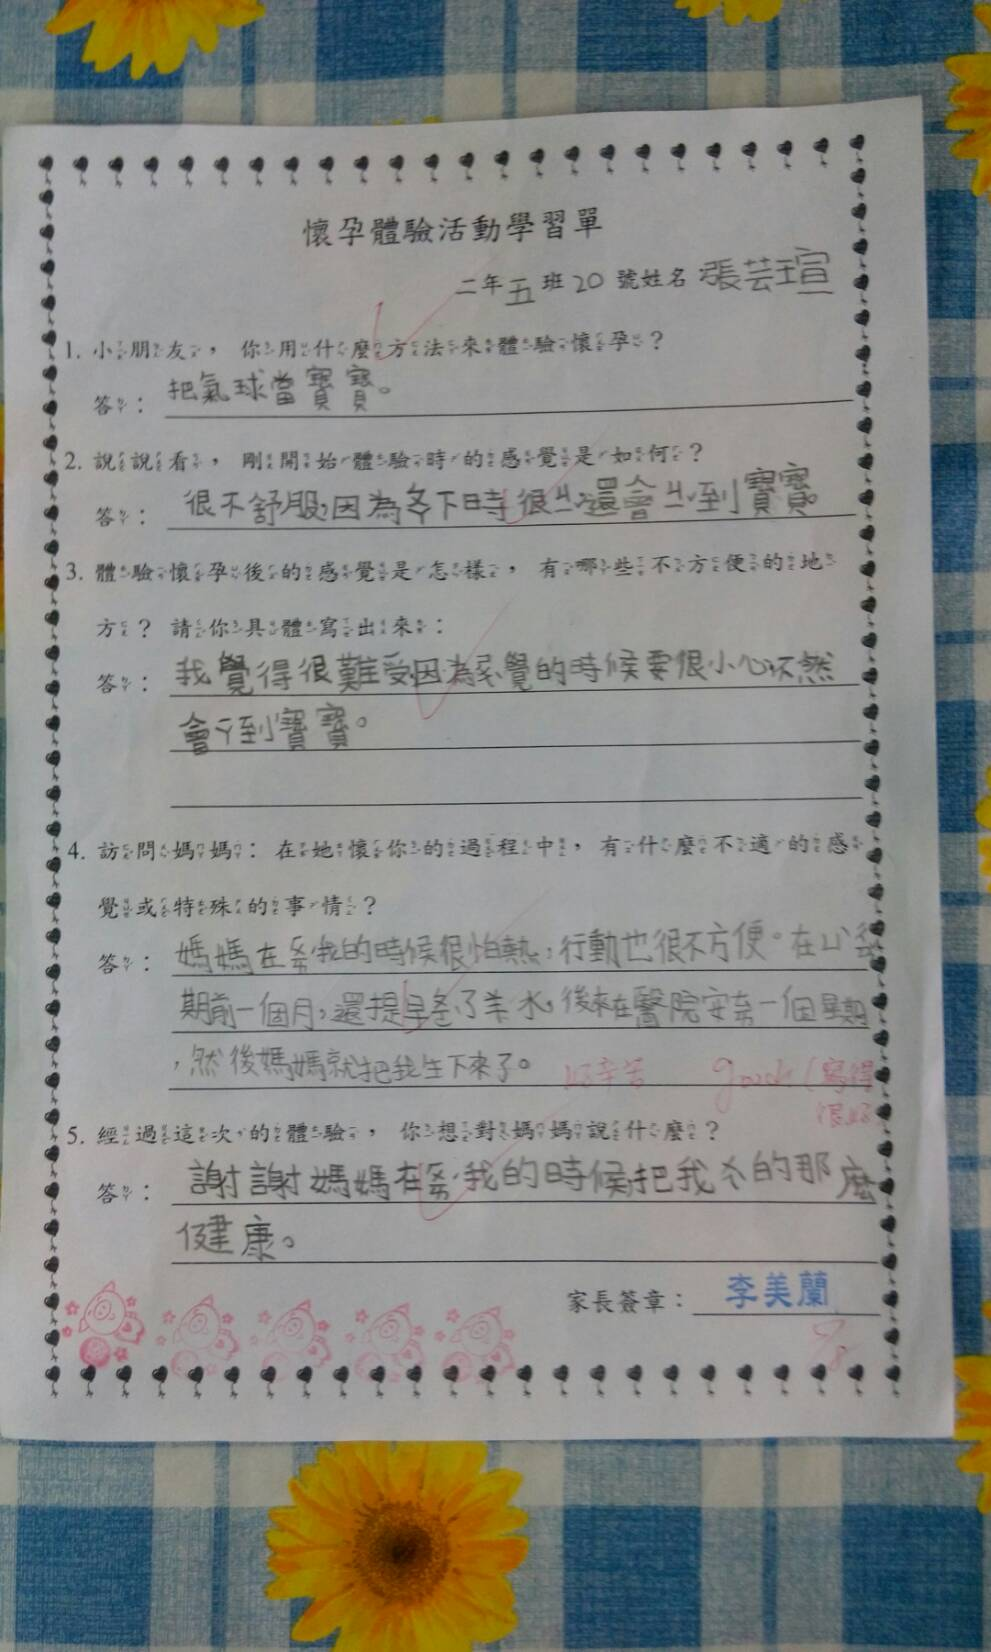 懷孕體驗活動學習單
二年五班20號姓名張芸瑄
1. 小朋友，你用什麼方法來體驗懷孕？
答：把氣球當寶寶。
2. 說說看，剛開始體驗時的感覺是如何？
答：很不舒服，因為 下時很 還會 到寶寶。
3. 體驗懷孕後的感覺是怎樣，有哪些不方便的地
方？請你具體寫出來：
答：我覺得很難受因為 覺的時候要很小心 然
會ㄚ到寶寶。
4. 訪問媽媽：在她懷你的過程中，有什麼不適的感
覺或特殊的事情？
答：媽媽在 我的時候很怕熱，行動也很不方便。在
期前一個月，還提早 了羊水，後來在醫院安 一個星期
，然後媽媽就把我生下來了。
好辛苦 good (寫得
很好
5. 經過這次的體驗，你想對媽媽說什麼？
答：謝謝媽媽在 我的時候把我 的那麼
健康。
家長簽章：李美蘭